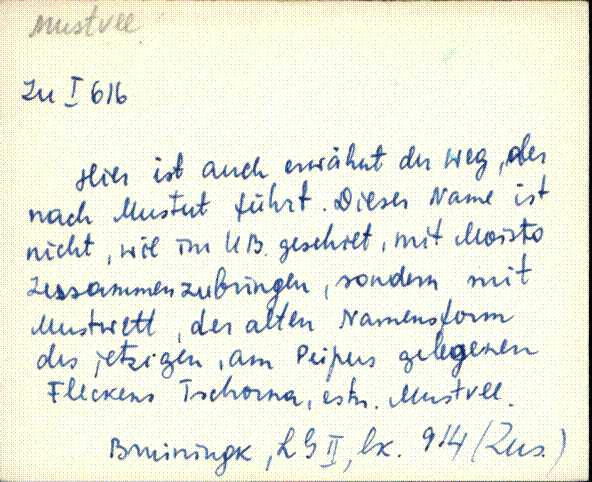 Mustvee
Zu I 616
Hier ist auch erwähnt der Weg, der
nach Mustut führt. Dieser Name ist
nicht, wie im UB. geschiet, mit Moisto
zusammenzubringen, sondern mit
Mustwett, der alten Namensform
des jetzigen, am Peipus gelegenen
Fleckens Tschorna, estn. Mustvee.
Bruiningk, LG II, lk. 914 (Zus.)